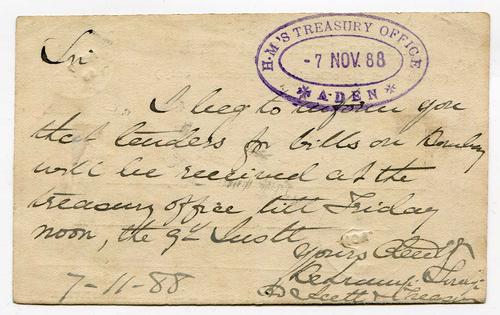 H.M'S TREASURY OFFICE
-7 NOV. 88
ADEN
Sir
I beg to inform you
that tenders for bills on Bombay
will be received at the
treasury office till Friday
noon, the 9th Instt
Yours
7-11-88